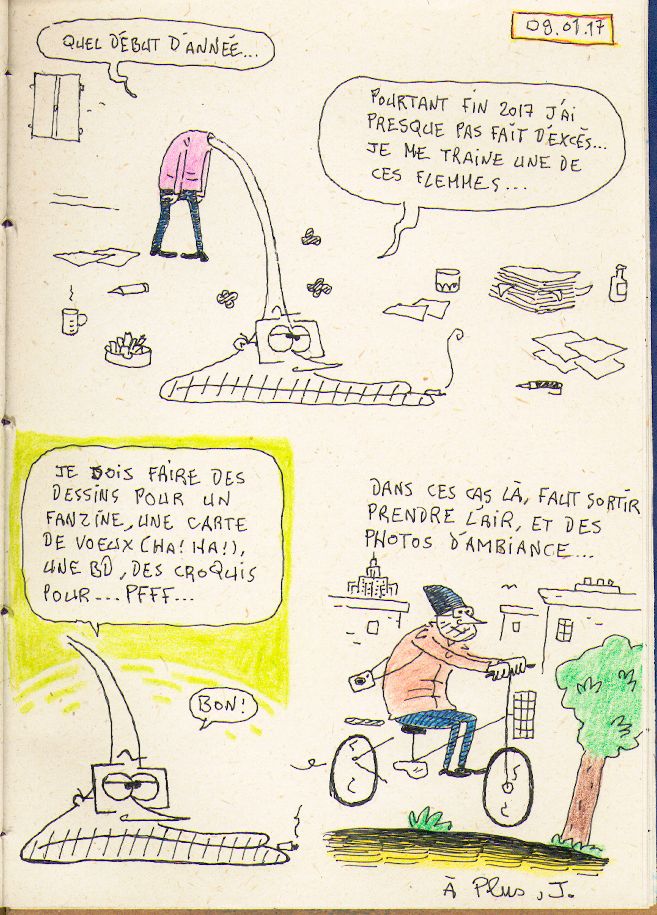 QUEL DÉBUT D'ANNÉE...
09.01.17
POURTANT FIN 2017 J'AI
PRESQUE PAS FAIT D'EXCÈS...
JE ME TRAINE UNE DE
CES FLEMMES...
JE DOIS FAIRE DES
DESSINS POUR UN
FANZINE, UNE CARTE
DE VOEUX (HA! HA!),
UNE BD, DES CROQUIS
POUR... PFFF...
BON!
DANS CES CAS LÀ, FAUT SORTIR
PRENDRE L'AIR, ET DES
PHOTOS D'AMBIANCE...
À Plus, J.